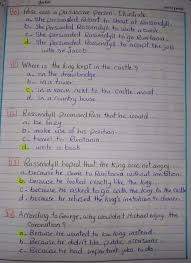 Rose was a persuasive person. Illustrate.
a. she persuaded Robert to shoot at Rassendyll.
b. She persuaded Rassendyll to write a book.
c. She persuaded Rassendyll to go Ruritania.
d. She persuaded Rassendyll to accept the job
with sir Jacob.
Where is the king kept in the castle?
a. on the drawbridge
b. in a tower
c. in a room next to the castle moat.
d. in a country house
Rassendyll promised Rose that he would
a. be lazy
b. make use of his position.
c. travel to Ruritania
d. write a book
Rassendyll hoped that the king was not angry
a. because he came to Ruritania without invitation.
b. because he looked exactly like the king.
c. because he asked to go the king to the castle
d. because he refused the king's invitation to dinner.
According to George, why couldn't Michael enjoy the
coronation?
a. Because he wanted to be king instead.
b. Because he didn't like public occasions.
c. Because he had important jobs to do.